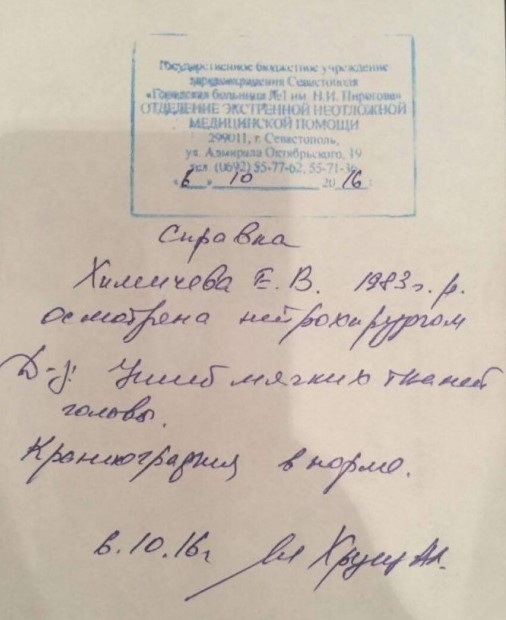 Государственное бюджетное учреждение
здравоохранения Севастополя
«Городская больница №1 им. Н.И. Пирогова»
ОТДЕЛЕНИЕ ЭКСТРЕННОЙ НЕОТЛОЖНОЙ
МЕДИЦИНСКОЙ ПОМОЩИ
299011, г. Севастополь,
ул. Адмирала Октябрьского, 19
тел. (0692) 55-77-62, 55-71-36
«6» 10 2016 г.
Справка
Химичева Е. В. 1983 г. р.
осмотрена нейрохирургом
D-з: Ушиб мягких тканей
головы.
Краниография в норме.
6.10.16 г